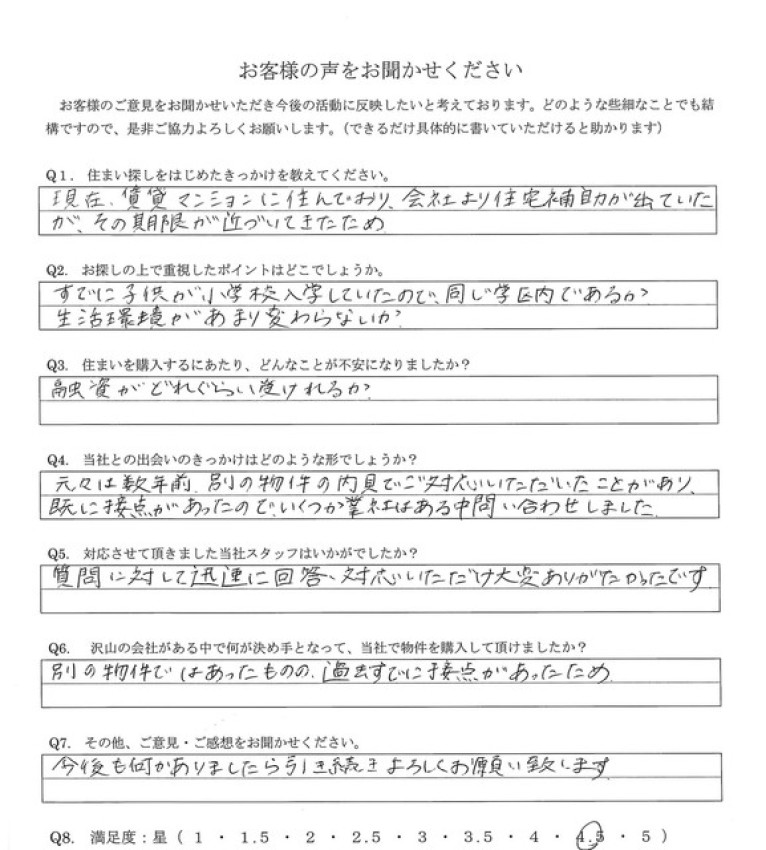 お客様の声をお聞かせください
お客様のご意見をお聞かせいただき今後の活動に反映したいと考えております。どのような些細なことでも結
構ですので、是非ご協力よろしくお願いします。（できるだけ具体的に書いていただけると助かります）
Q1. 住まい探しをはじめたきっかけを教えてください。
現在、賃貸マンションに住んでおり、会社より住宅補助が出ていた
が、その期限が近づいてきたため
Q2. お探しの上で重視したポイントはどこでしょうか。
すでに子供が小学校入学していたので、同じ学区内であるか?
生活環境があまり変わらないか?
Q3. 住まいを購入するにあたり、どんなことが不安になりましたか?
融資がどれぐらい受けれるか?
Q4. 当社との出会いのきっかけはどのような形でしょうか?
元々は数年前、別の物件の内見でご対応いただいたことがあり、
既に接点があったので、いくつか業社はある中問い合わせしました。
Q5. 対応させて頂きました当社スタッフはいかがでしたか?
質問に対して迅速に回答、対応いただけ大変ありがたかったです
Q6. 沢山の会社がある中で何が決め手となって、当社で物件を購入して頂けましたか?
別の物件ではあったものの、過去すでに接点があったため
Q7. その他、ご意見・ご感想をお聞かせください。
今後も何かありましたら引き続きよろしくお願い致します
Q8. 満足度：星（ 1 ・ 1.5 ・ 2 ・ 2.5 ・ 3 ・ 3.5 ・ 4 ・ 4.5 ・ 5 ）